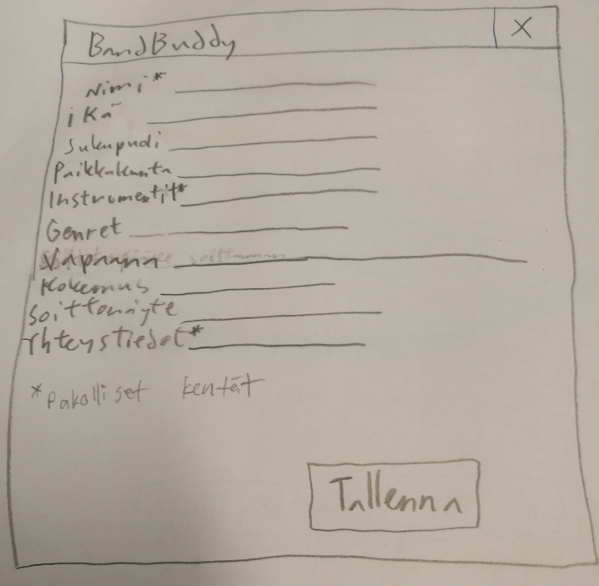 BandBuddy X
Nimi*
ikä
Sukupuoli
Paikkakunta
Instrumentit*
Genret
Vapaana
Kokemus
Soittonäyte
Yhteystiedot*
*Pakolliset kentät
Tallenna